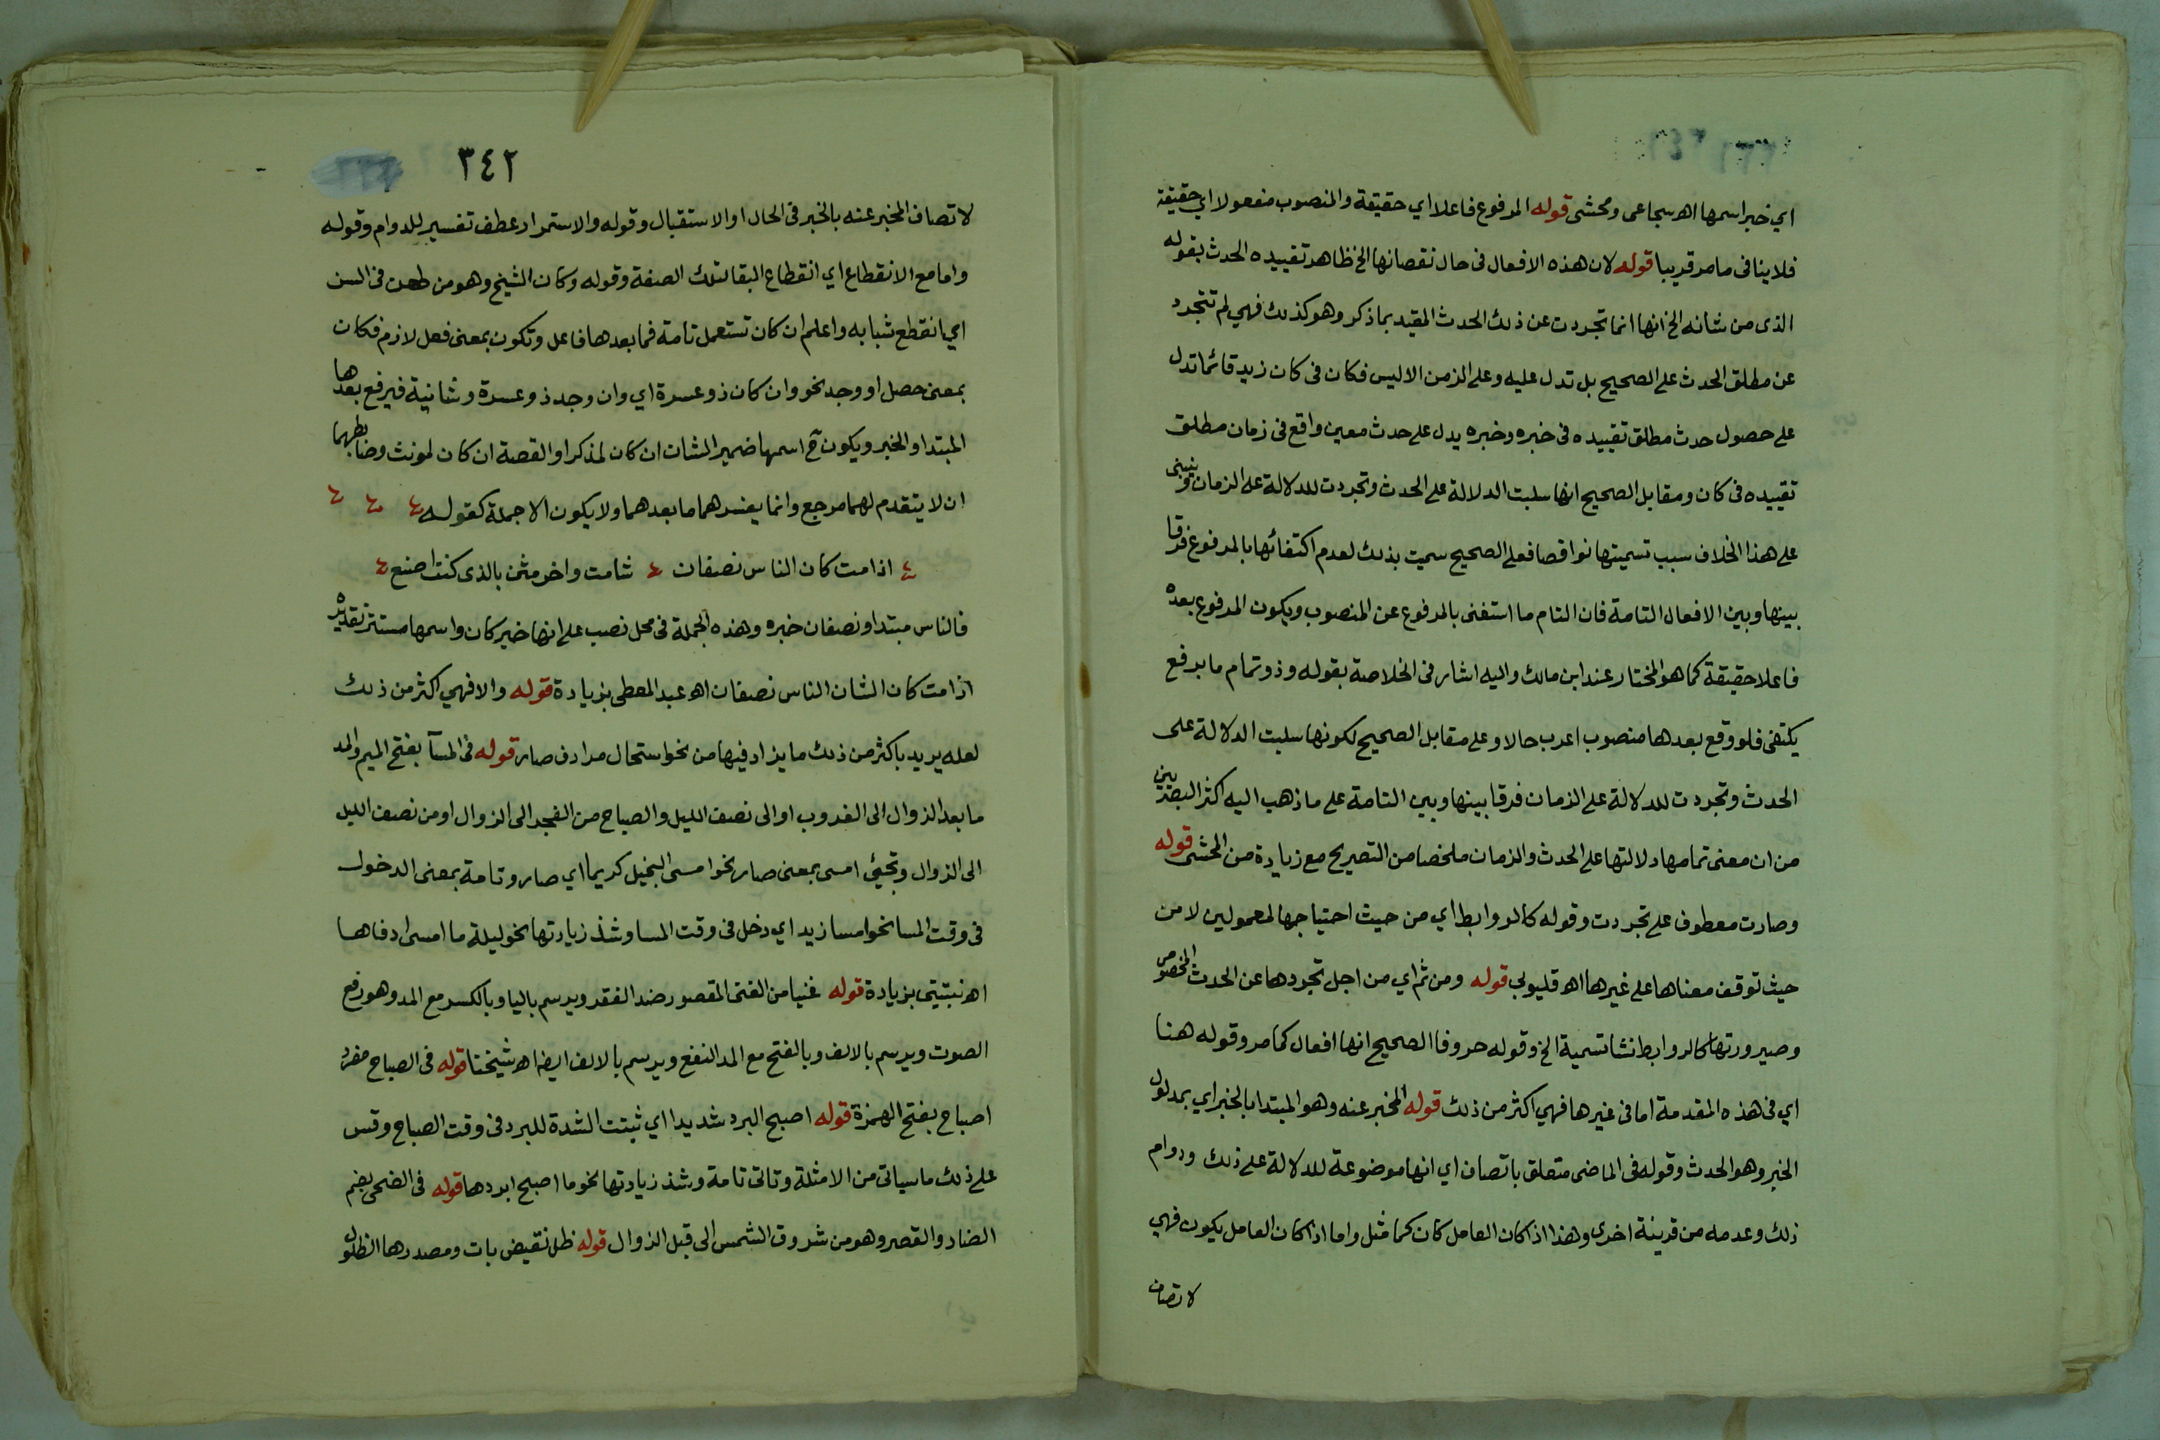 اي خبر اسمها اهر سجاعى ومحشى قوله المرفوع فاعلا اي حقيقة والمنصوب مفعولا اي حقيقة
فلاينافى مامر قريبا قوله لان هذه الافعال فى حال نقصانها الخ ظاهر تقييده الحدث بقوله
الذى من شانه الخ انها انما تجردت عن ذلك الحدث المقيد بما ذكر وهو كذلك فهي لم تتجرد
عن مطلق الحدث على الصحيح بل تدل عليه وعلى الزمن الا ليس فكان فى كان زيد قائما تدل
على حصول حدث مطلق تقييده فى خبره وخبره يدل على حدث معين واقع فى زمان مطلق
تقييده فى كان ومقابل الصحيح انها سلبت الدلالة على الحدث وتجردت للدلالة على الزمان وينبنى
على هذا الخلاف سبب تسميتها نواقصا فعلى الصحيح سميت بذلك لعدم اكتفائها بالمرفوع فرقا
بينها وبين الافعال التامة فان التام ما استغنى بالمرفوع عن المنصوب ويكون المرفوع بعده
فاعلا حقيقة كما هو المختار عند ابن مالك واليه اشار فى الخلاصة بقوله وذو تمام ما برفع
يكتفى فلو وقع بعدها منصوب اعرب حالا وعلى مقابل الصحيح لكونها سلبت الدلالة على
الحدث وتجردت للدلالة على الزمان فرقا بينها وبين التامة على ما ذهب اليه اكثر البصريين
من ان معنى تمامها دلالتها على الحدث والزمان ملخصا من التصريح مع زيادة من المحشى قوله
وصارت معطوف على تجردت وقوله كالروابط اي من حيث احتياجها لمعمولين لا من
حيث توقف معناها على غيرها اهر قليوبى قوله ومن ثم اي من اجل تجردها عن الحدث المخصوص
وصيرورتها كالروابط نشا تسمية الخ وقوله حروفا الصحيح انها افعال كما مر وقوله هنا
اي فى هذه المقدمة اما فى غيرها فهي اكثر من ذلك قوله المخبر عنه وهو المبتدا بالخبر اي بمدلول
الخبر وهو الحدث وقوله فى الماضى متعلق باتصاف اي انها موضوعة للدلالة على ذلك ودوام
ذلك وعدمه من قرينة اخرى وهذا اذا كان العامل كان كما مثل واما اذا كان العامل يكون فهي
لاتصاف
٣٤٢
لاتصاف المخبر عنه بالخبر فى الحال او الاستقبال وقوله والاستمرار عطف تفسير للدوام وقوله
واما مع الانقطاع اي انقطاع البقا لتلك الصفة وقوله وكان الشيخ وهو من طعن فى السن
اي انقطع شبابه واعلم ان كان تستعمل تامة فما بعدها فاعل وتكون بمعنى فعل لازم فكان
بمعنى حصل او وجد نحو وان كان ذو عسرة اي وان وجد ذو عسرة وشانية فيرفع بعدها
المبتدا والخبر ويكون ح اسمها ضمير الشان ان كان لمذكر او القصة ان كان لمونث وضابطهما
ان لا يتقدم لهما مرجع وانما يفسرهما ما بعدهما ولا يكون الا جملة كقوله
اذا مت كان الناس نصفان شامت واخر مثن بالذى كنت اصنع
فالناس مبتدا ونصفان خبره وهذه الجملة فى محل نصب على انها خبر كان واسمها مستتر تقديره
اذا مت كان الشان الناس نصفان اهر عبد المعطى بزيادة قوله والا فهي اكثر من ذلك
لعله يريد باكثر من ذلك ما يزاد فيها من نحو استحال مرادف صار قوله فى المسآ بفتح الميم والمد
ما بعد الزوال الى الغروب او الى نصف الليل والصباح من الفجر الى الزوال او من نصف الليل
الى الزوال وتجيئ امسى بمعنى صار نحو امسى البخيل كريما اي صار وتامة بمعنى الدخول
فى وقت المسا نحو امسا زيد اي دخل فى وقت المسا وشذ زيادتها نحو ليلة ما امسى ادفاها
اهر نبتيتى بزيادة قوله غنيا من الغنى المقصور ضد الفقر ويرسم باليا وبالكسر مع المد وهو رفع
الصوت ويرسم بالالف وبالفتح مع المد النفع ويرسم بالالف ايضا اهر شيخنا قوله فى الصباح مفرد
اصباح بفتح الهمزة قوله اصبح البرد شديدا اي ثبتت الشدة للبرد فى وقت الصباح وقس
على ذلك ما سياتى من الامثلة وتاتى تامة وشذ زيادتها نحو ما اصبح ابردها قوله فى الضحى بضم
الضاد والقصر وهو من شروق الشمس الى قبل الزوال قوله ظل نقيض بات ومصدرها الظلول